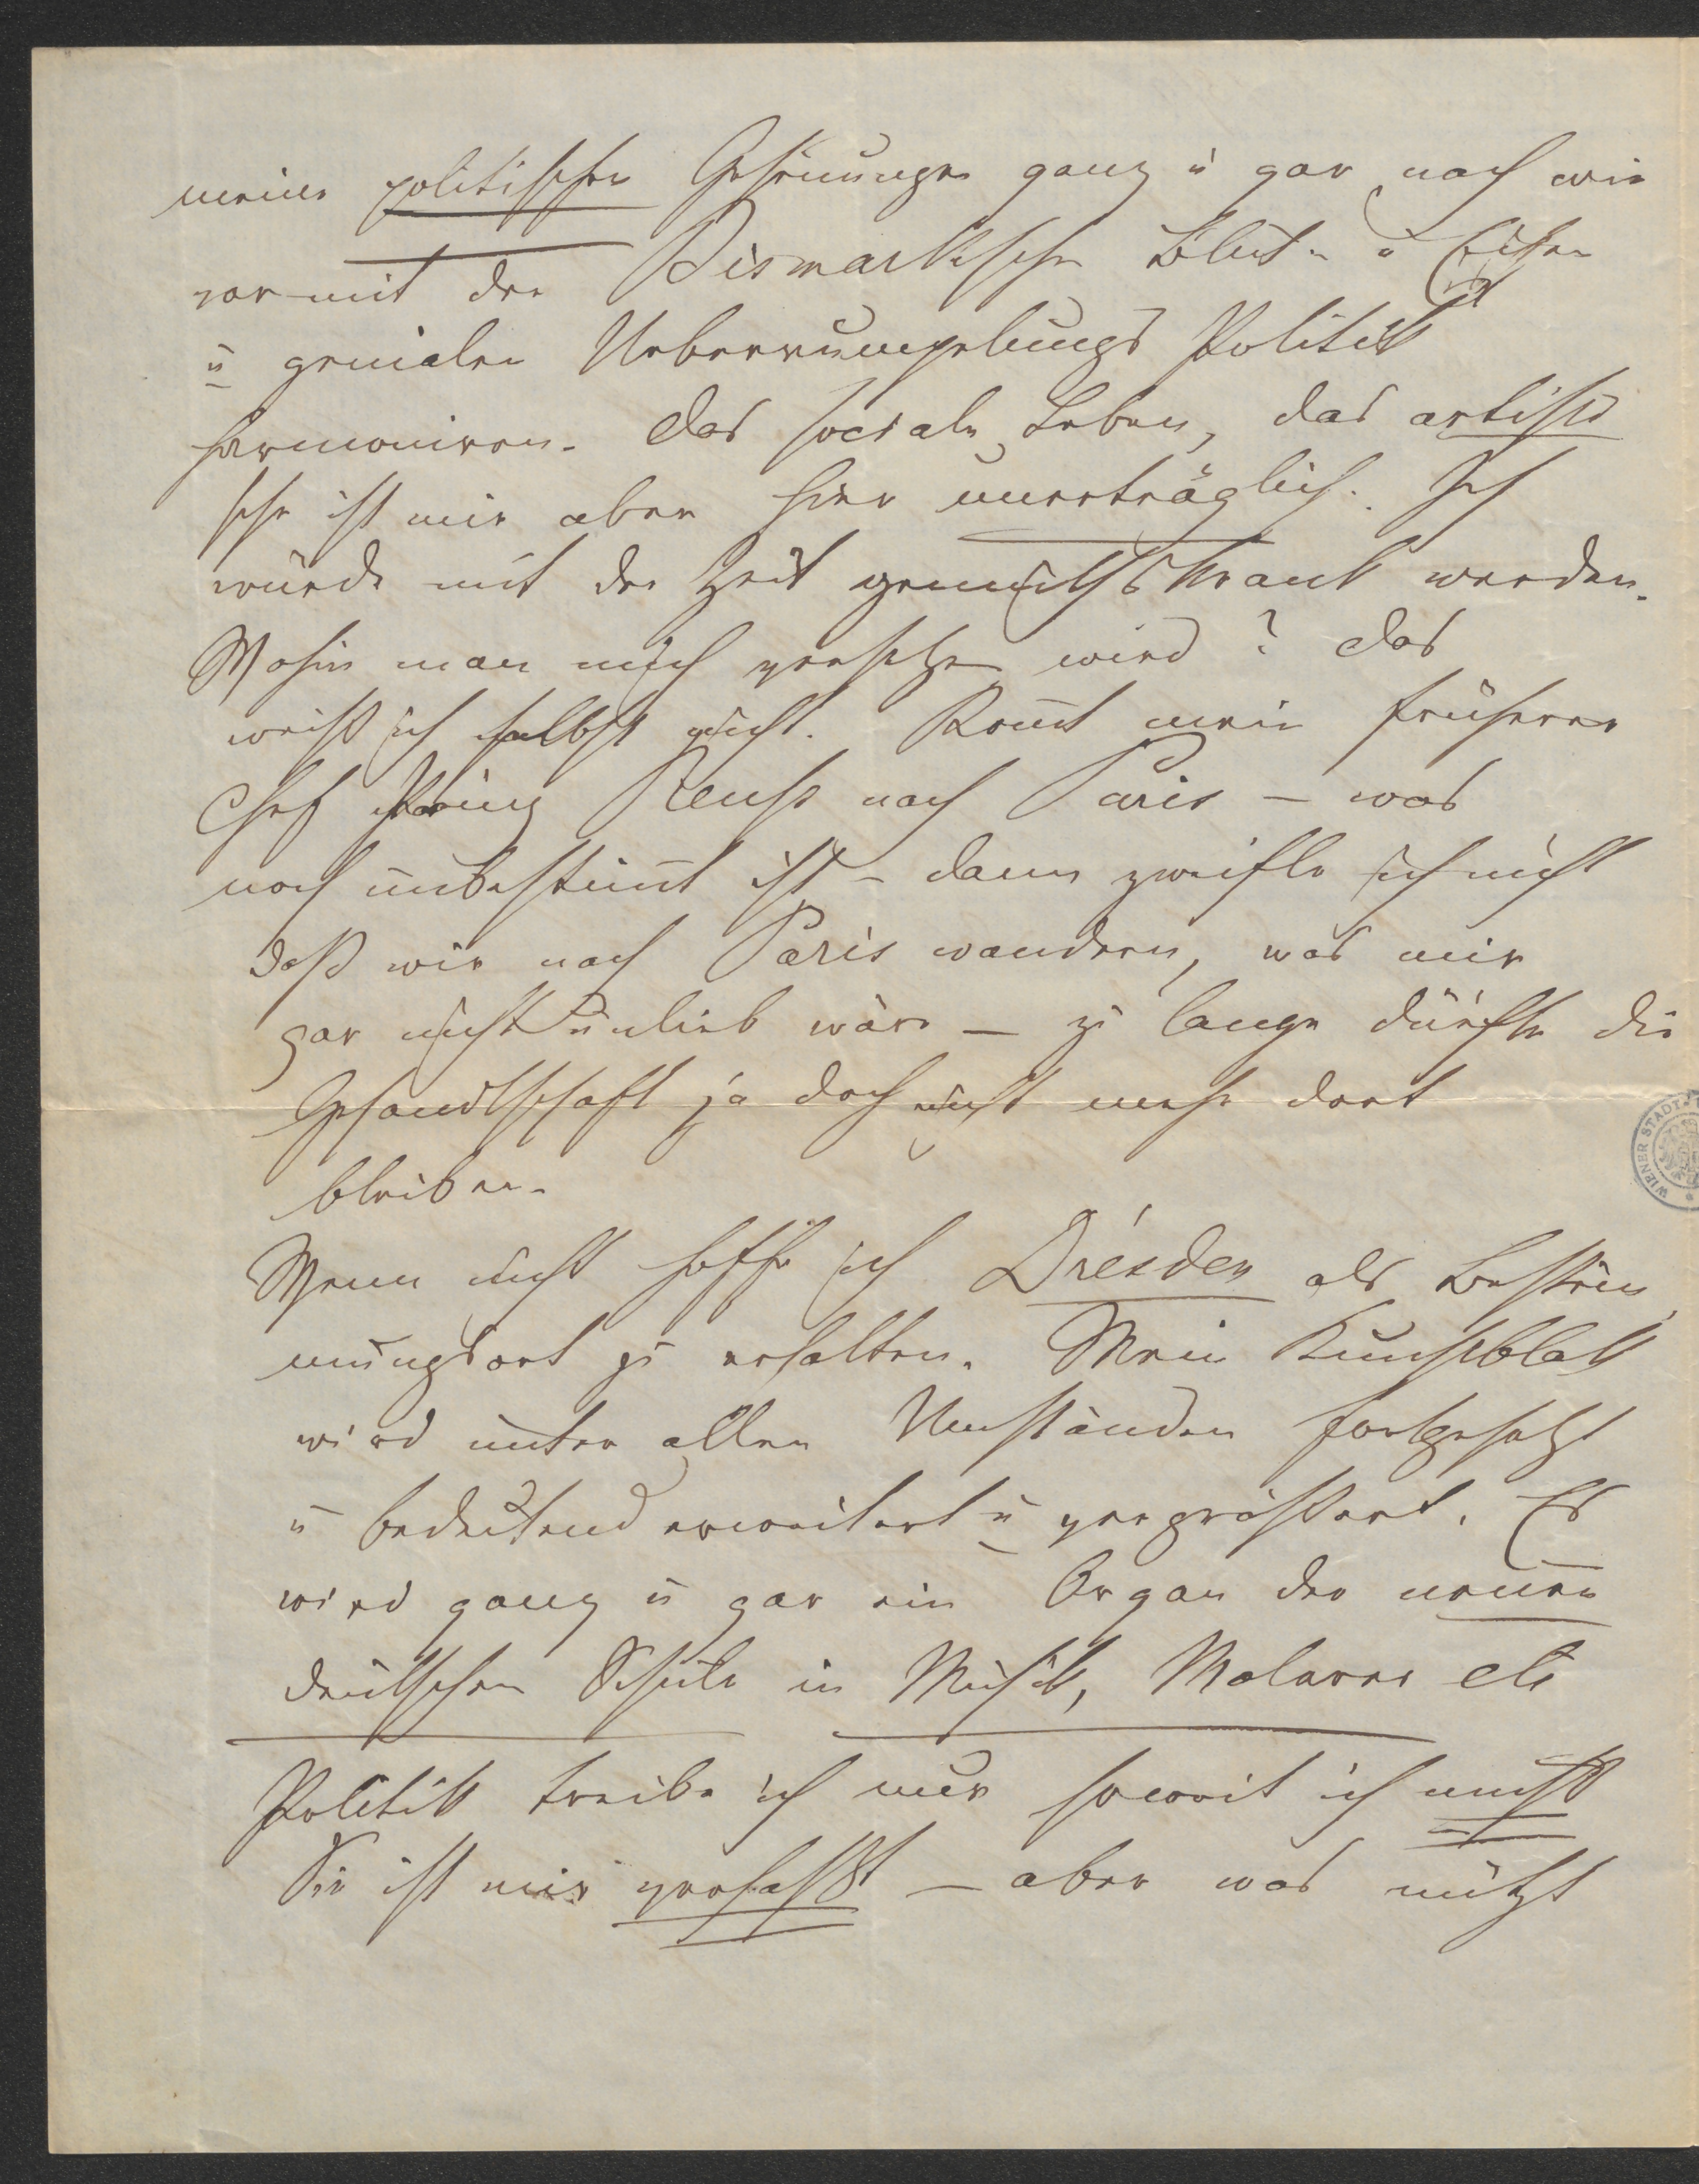 meine politischen Gesinnungen ganz u gar nach wie
vor mit der Bismarkschen Blut- u Eisen
u genialen Ueberrumpelungs Politik
harmoniren. Das sociale Leben, das artisti
sche ist mir aber hier unerträglich. Ich
würde mit der Zeit gemüthskrank werden.
Wohin man mich versetzen wird? Das
weiß ich selbst nicht. Komt mein früherer
Chef Prinz Reuss nach Paris – was
noch unbestimt ist – dann zweifle ich nicht
daß wir nach Paris wandern, was mir
gar nicht unlieb wäre – zu lange dürfte die
Gesandtschaft ja doch nicht mehr dort
bleiben.
Wenn nicht hoffe ich Dresden als Bestim
mungsort zu erhalten. Mein Kunstblatt
wird unter allen Umständen fortgesetzt
u bedeutend erweitert u vergrößert. Es
wird ganz u gar ein Organ der neuen
deutschen Schule in Musik, Malerei etc
Politik treibe ich nur soweit ich muß
Sie ist mir verhaßt – aber was nützt
WIENER STADT